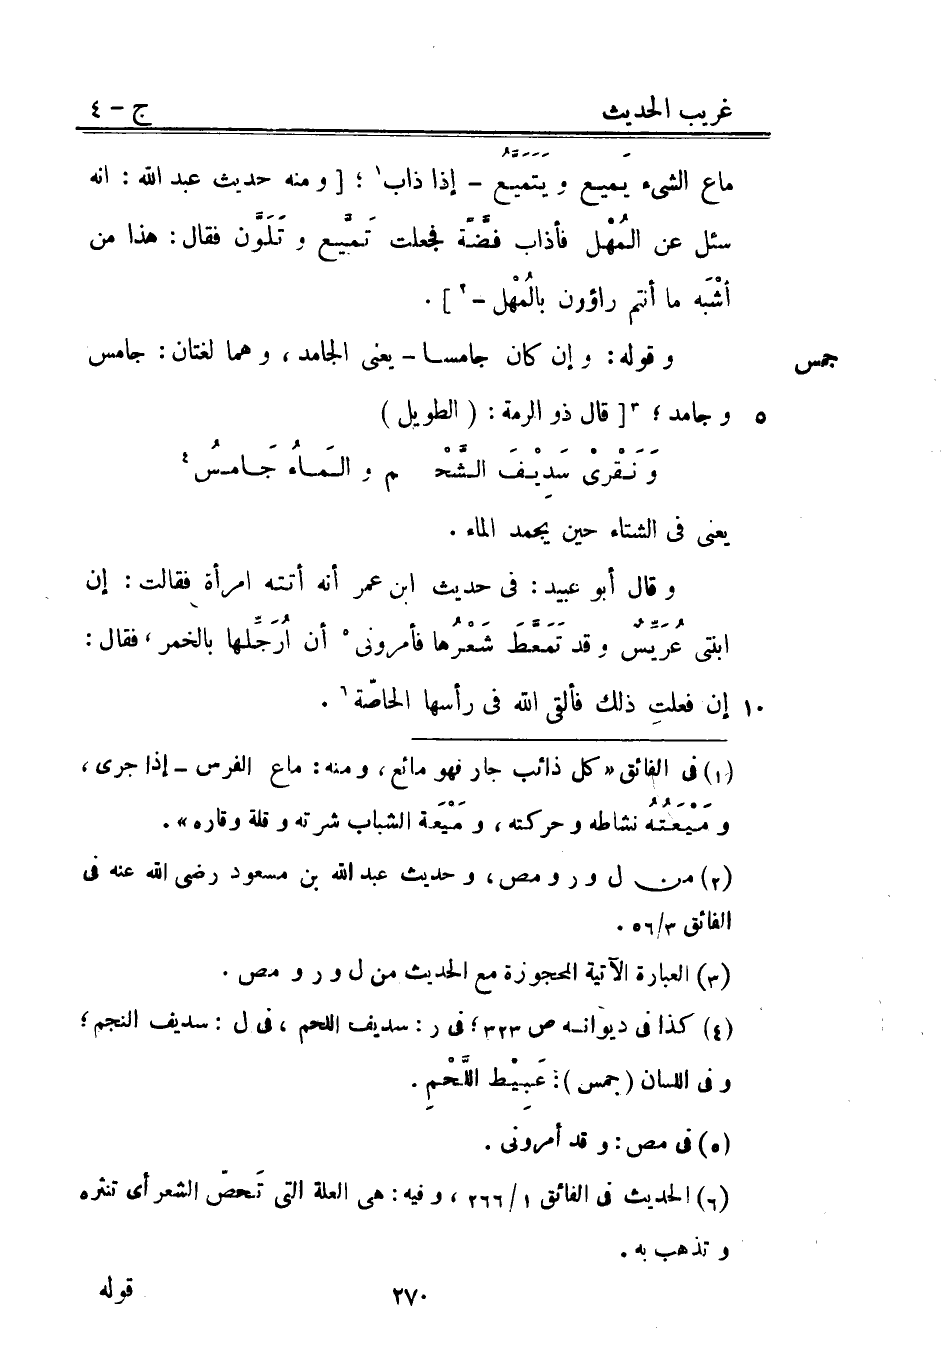 غريب الحديث ج - ٤
ماع الشىء يَميع و يتَميَّعُ - إذا ذاب١ ؛ [ و منه حديث عبد الله : انه
سئل عن المُهْل فأذاب فضَّة فجعلت تَميَّع و تَلَوَّن فقال : هذا من
أشْبَه ما أنتم راؤون بالمُهْل -٢ ] .
جمس و قوله : و إن كان جامسا - يعنى الجامد ، و هما لغتان : جامس
٥ و جامد ؛ ٣[ قال ذو الرمة : ( الطويل )
وَ نَقْرِىْ سَدِيْفَ الشَّحْـ ـم و المَاءُ جَامسُ٤
يعنى فى الشتاء حين يجمد الماء .
و قال أبو عبيد : فى حديث ابن عمر أنه أتته امرأة فقالت : إن
ابنتى عُرَيِّسٌ و قد تَمَعَّطَ شَعْرُها فأمرونى٥ أن أُرَجِّلها بالخمر ، فقال :
١٠ إن فعلتِ ذلك فألقى الله فى رأسها الحاصّة٦ .
(١) فى الفائق «كل ذائب جار فهو مائع ، و منه : ماع الفرس - إذا جرى ،
و مَيْعَتُهُ نشاطه و حركته ، و مَيْعَة الشباب شرته و قلة وقاره» .
(٢) من ل و ر و مص ، و حديث عبد الله بن مسعود رضى الله عنه فى
الفائق ٣/٥٦ .
(٣) العبارة الآتية المحجوزة مع الحديث من ل و ر و مص .
(٤) كذا فى ديوانه ص ٣٢٣ ؛ فى ر : سديف اللحم ، فى ل : سديف النجم ؛
و فى اللسان ( جمس ) : عَبِيْط اللَّحْمِ .
(٥) فى مص : و قد أمرونى .
(٦) الحديث فى الفائق ١/٢٦٦ ، و فيه : هى العلة التى تَحصّ الشعر أى تنثره
و تذهب به .
٢٧٠ قوله